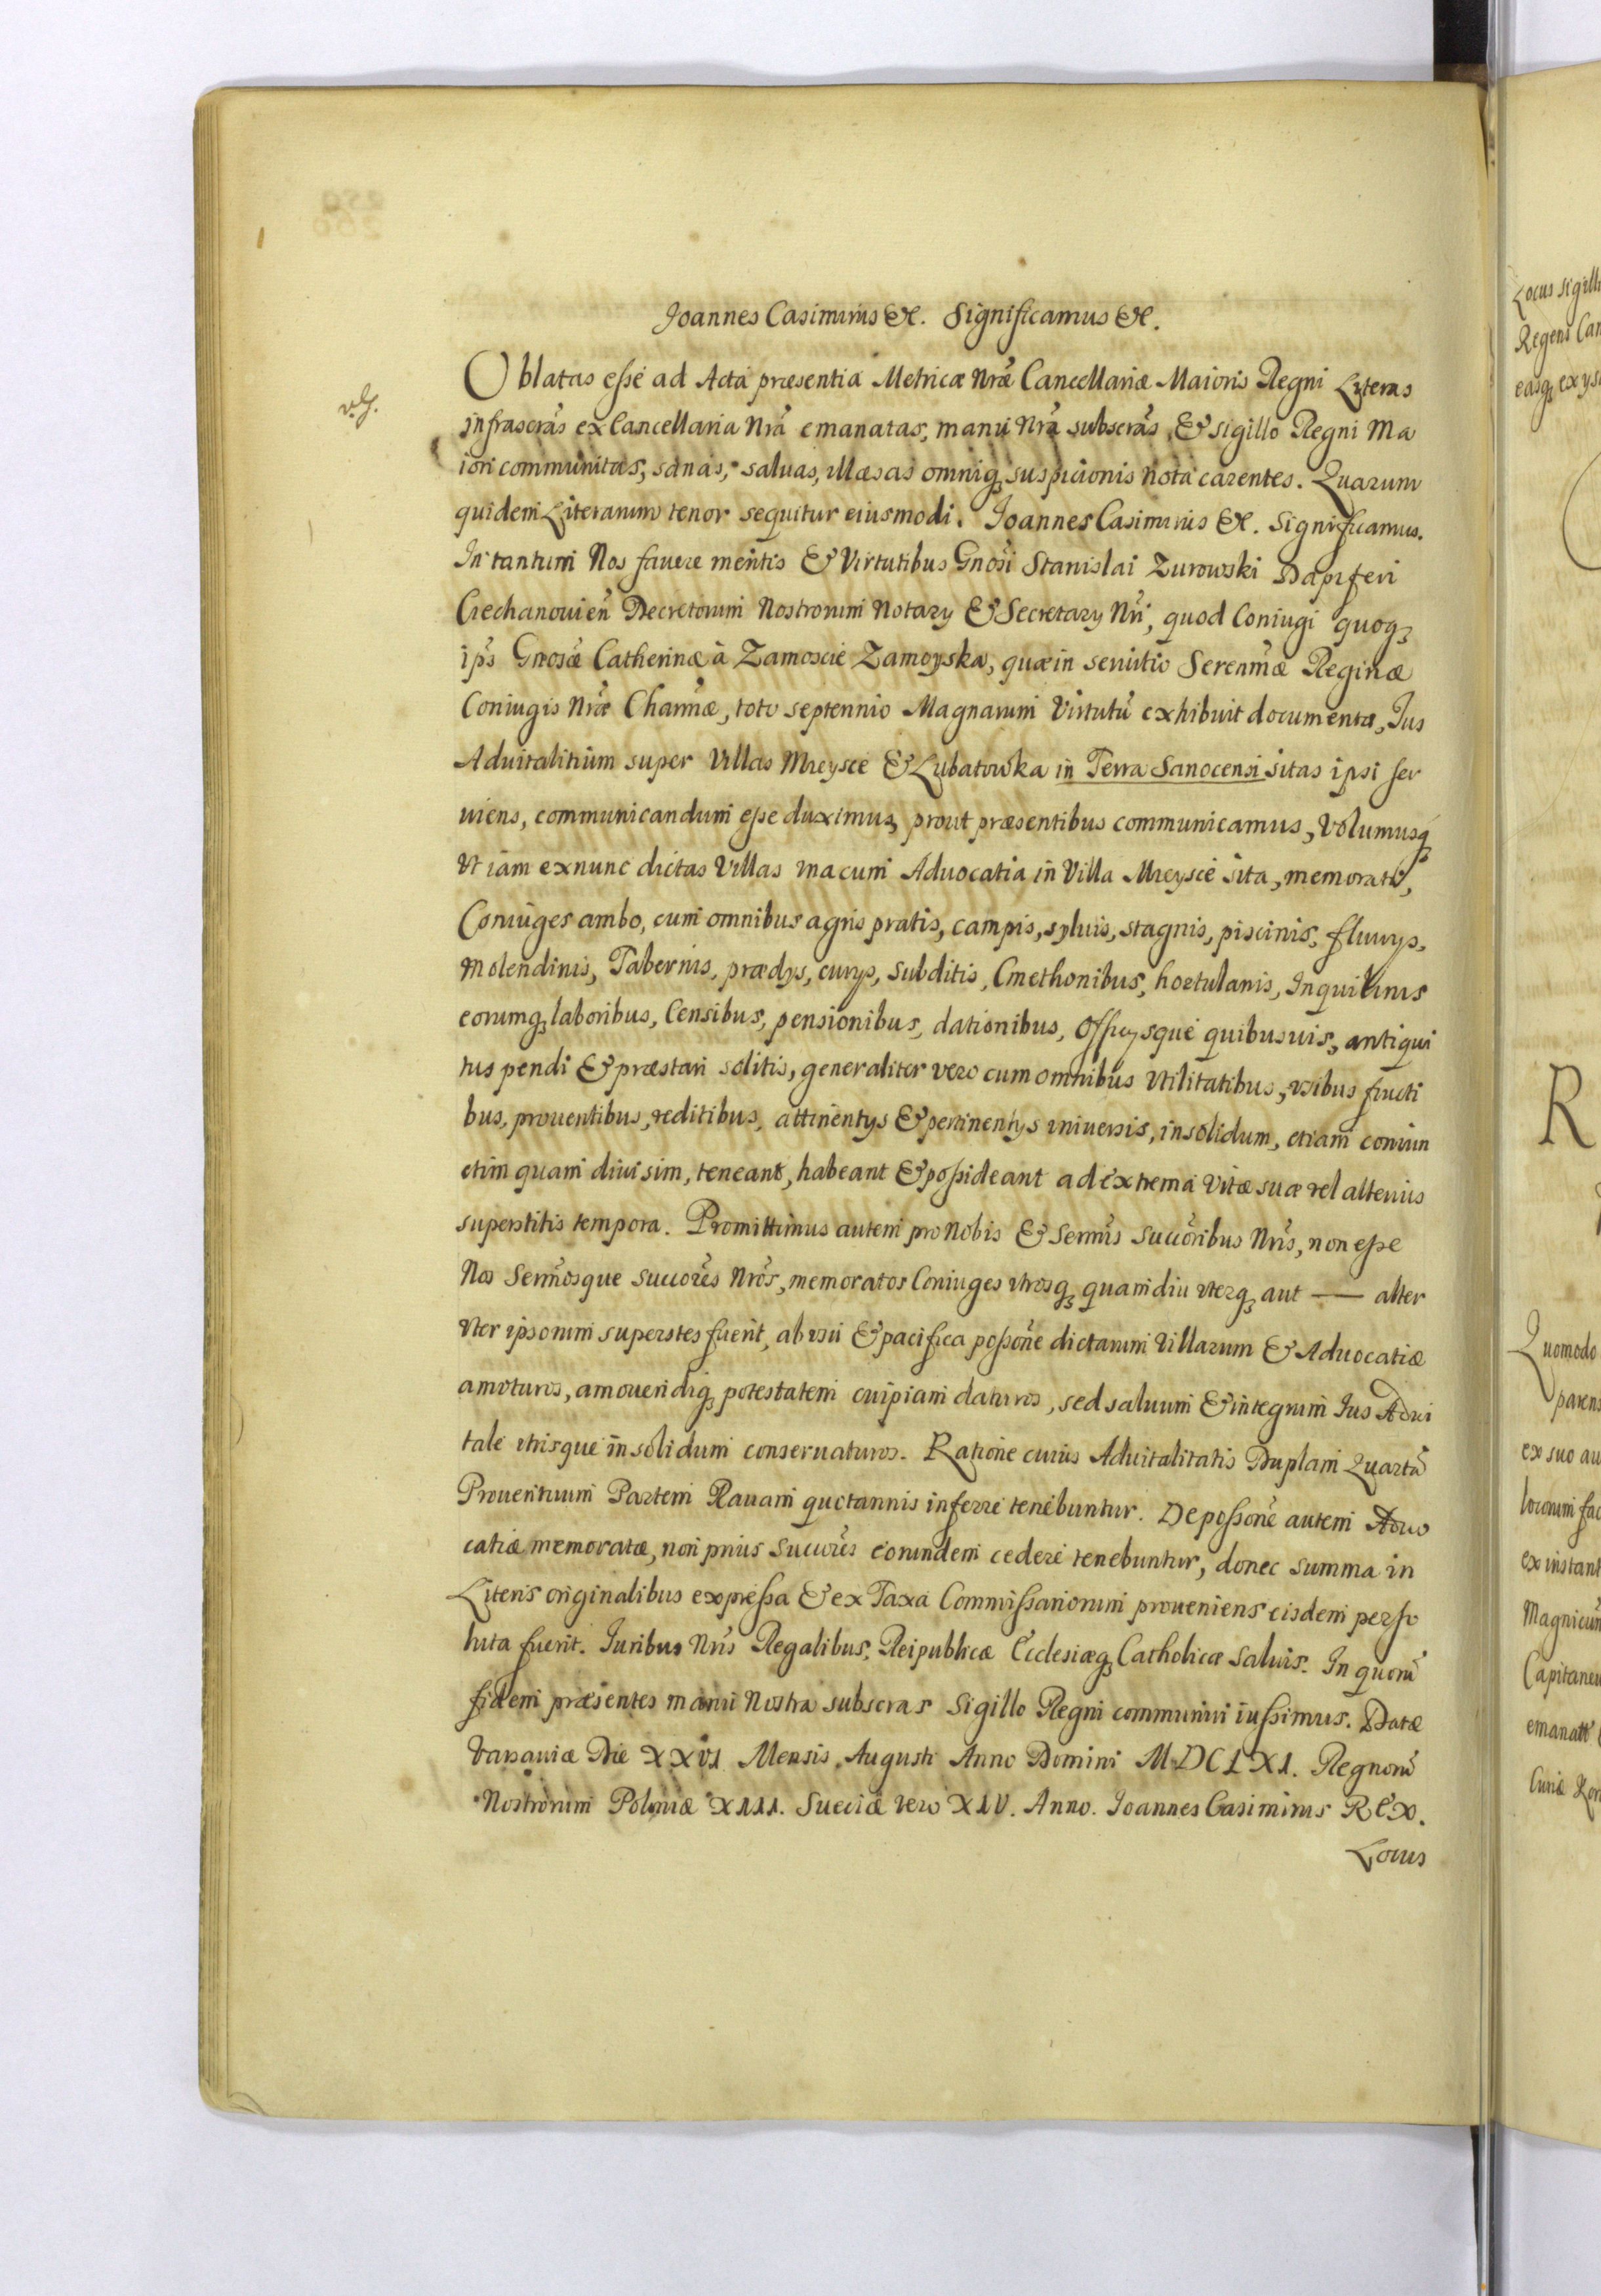 Joannes Casimirus &c. Significamus &c.
Oblatas esse ad Acta præsentia Metricæ Nræ Cancellariæ Maioris Regni Literas
infrascras ex Cancellaria Nrã emanatas, manu Nrã subscras, & sigillo Regni Ma
iori communitas, sanas, saluas, illæsas omniq suspicionis nota carentes. Quarum
quidem Literarum tenor sequitur eiusmodi. Joannes Casimirus &c. Significamus.
In tantum Nos fauere meritis & Virtutibus Gnosi Stanislai Zurowski Dapiferi
Ciechanouien Decretorum Nostrorum Notary & Secretary Nri, quod Coniugi quoq
ips Gnosæ Catherinæ à Zamoscie Zamoyska, quæ in seruitio Serenmæ Reginæ
Coniugis Nræ Charmæ, toto septennio Magnarum Virtutũ exhibuit documenta, Jus
Aduitalitium super Villas Mieysce & Lubatowka in Terra Sanocensi sitas ipsi ser
uiens, communicandum esse duximus, prout præsentibus communicamus, Volumusq
Vt iam ex nunc dictas Villas vna cum Aduocatia in Villa Mieysce sita, memorati,
Coniuges ambo, cum omnibus agris pratis, campis, syluis, stagnis, piscinis, fluuys,
Molendinis, Tabernis, prædys, curys, subditis, Cmethonibus, hortulanis, Inquilinis
eorumq laboribus, Censibus, pensionibus, dationibus, Officysque quibusuis, antiqui
tus pendi & præstari solitis, generaliter vero cum omnibus Vtilitatibus, vsibus fructi
bus, prouentibus, reditibus, attinentys & pertinentys vniuersis, in solidum, etiam coniun
ctim quam diuisim, teneant, habeant & possideant ad extrema Vitæ suæ vel alterius
superstitis tempora. Promittimus autem pro Nobis & Sermis Succoribus Nris, non esse
Nos Sermosque Succores Nros, memoratos Coniuges vtrosq quamdiu vterq aut — alter
Vter ipsorum superstes fuerit, ab vsu & pacifica possone dictarum Villarum & Aduocatiæ
amoturos, amouendiq potestatem cuipiam daturos, sed saluum & integrum Jus Adui
tale vtrisque in solidum conseruaturos. Ratione cuius Aduitalitatis Duplam Quartã
Prouentuum Partem Rauam quotannis inferre tenebuntur. De possone autem Aduo
catiæ memoratæ, non prius Succores eorundem cedere tenebuntur, donec summa in
Literis originalibus expressa & ex Taxa Commissariorum proueniens eisdem perso
luta fuerit. Juribus Nris Regalibus, Reipublicæ Ecclesiæq Catholicæ saluis. In quorũ
fidem præsentes manu Nostra subscras Sigillo Regni communiri iussimus. Datæ
Varsauiæ Die XXVI Mensis Augusti Anno Domini MDCLXI. Regnorũ
Nostrorum Poloniæ XIII. Sueciæ vero XIV. Anno. Joannes Casimirus REX.
Locus
Locus sigilli
Regens Can
easq ex ys
R
Quomodo
parens
ex suo au
locorum fac
ex instant
Magnicũ
Capitaneu
emanatt
Curiæ